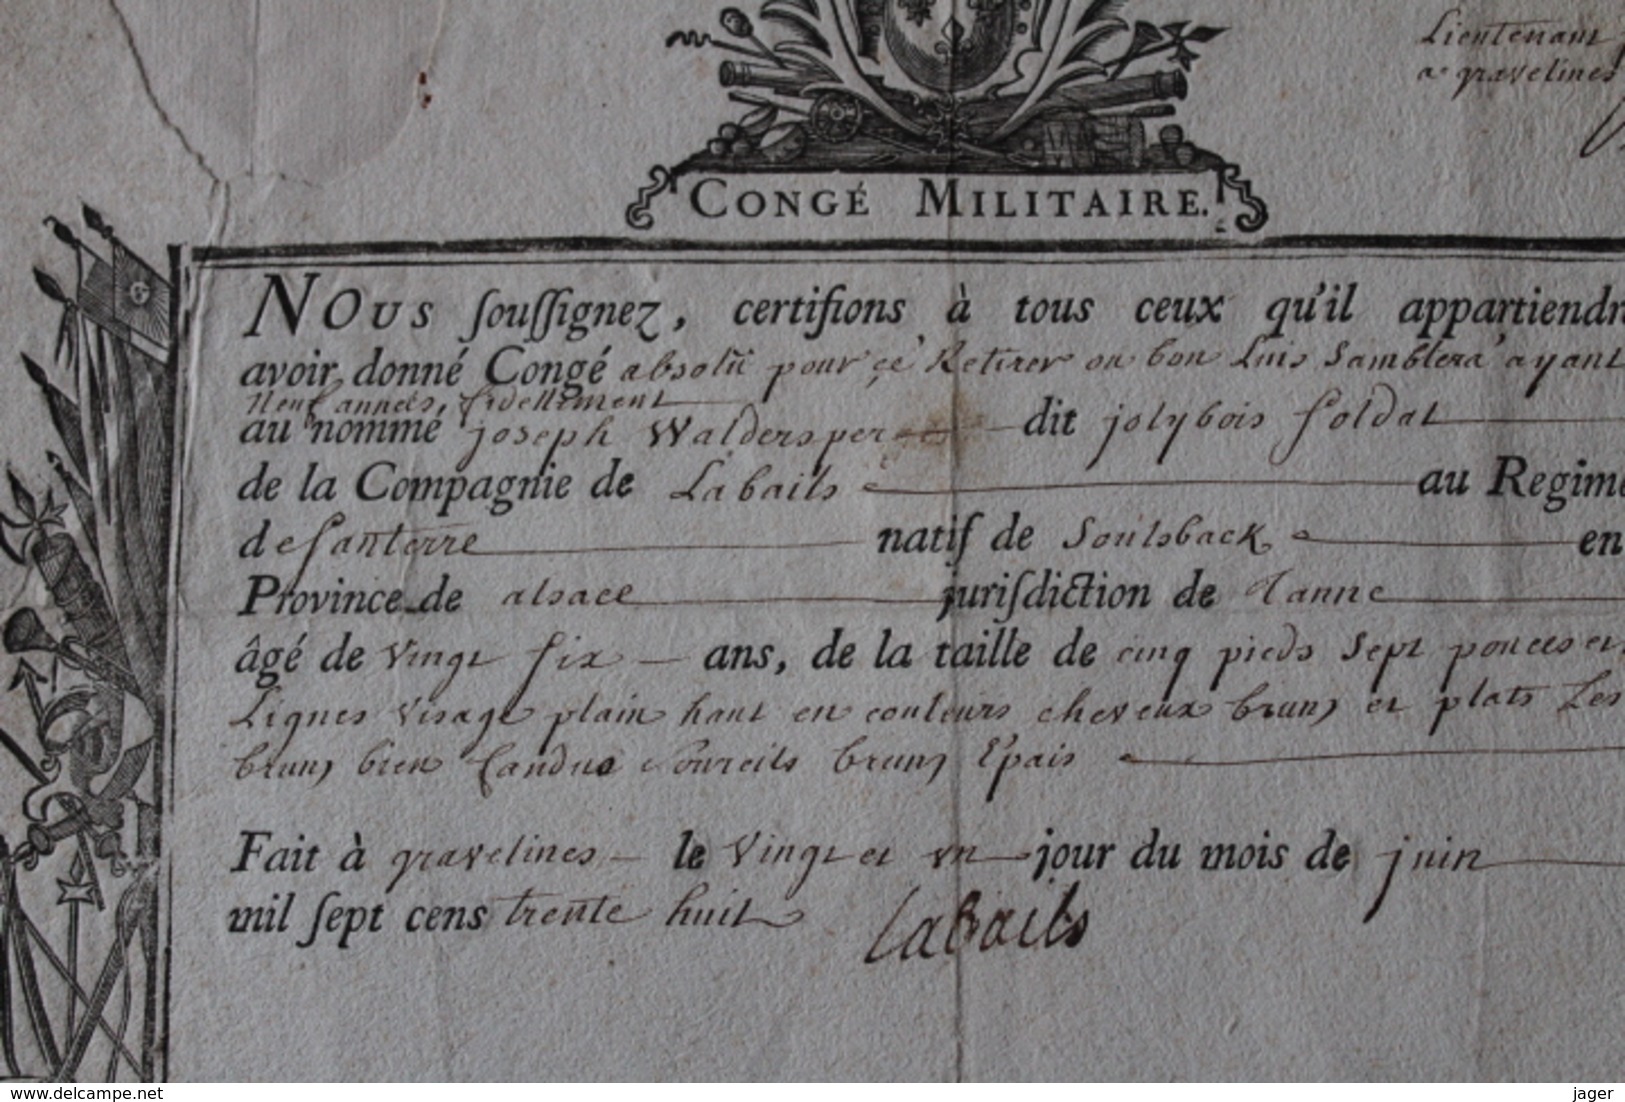 Lieutenant
a gravelines
CONGÉ MILITAIRE.
NOUS ſouſſignez, certifions à tous ceux qu'il appartiendr
avoir donné Congé absolu pour ce Retirer ou bon Luis Samblera ayant
Neuf années, fidellement
au nommé joseph Waldersper dit jolybois ſoldat
de la Compagnie de Labails au Regime
de ſanterre natif de Soultsback en
Province de alsace juriſdiction de Tanne
âgé de Vingt ſix ans, de la taille de cinq pieds Sept pouces et
Lignes Visage plain haut en couleurs cheveux bruns et plats Les
bruns bien fandue Sourcils bruns Epais
Fait à gravelines le Vingt et un jour du mois de juin
mil ſept cens trente huit Labails
delcampe.net
jager